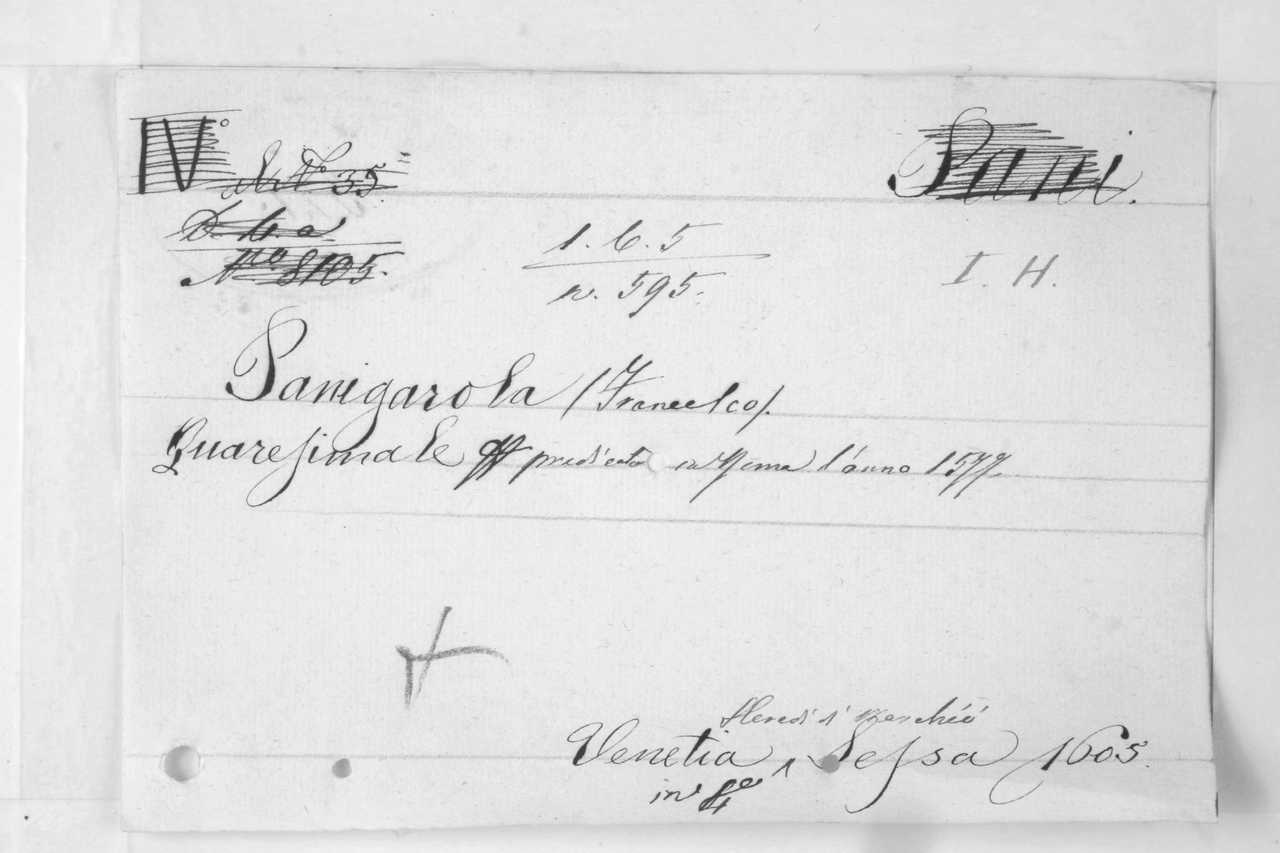 N°
Pani.
A N° 35
D. b. a.
Nro 8105.
1. 6. 5
n. 595.
I. H.
Panigarola (Francesco).
Quaresimale predicato in Roma l'anno 1577
Heredi di Marchiò
Venetia, Sessa 1605.
in 4°